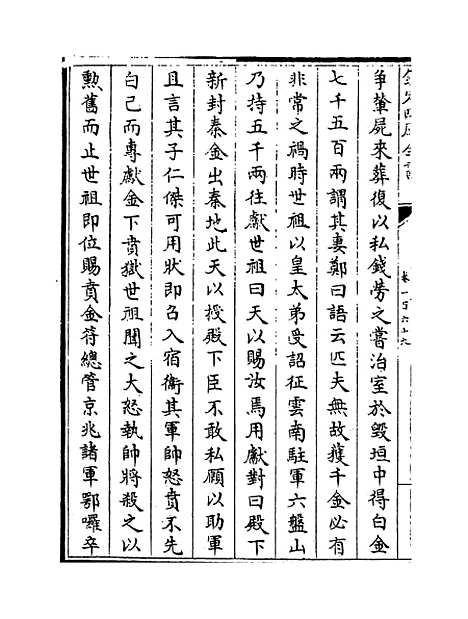 欽定四庫全書
卷一百六十九
爭輦屍來葬復以私錢勞之嘗治室於毀垣中得白金
七千五百兩謂其妻鄭曰語云匹夫無故獲千金必有
非常之禍時世祖以皇太弟受詔征雲南駐軍六盤山
乃持五千兩往獻世祖曰天以賜汝焉用獻對曰殿下
新封秦金出秦地此天以授殿下臣不敢私願以助軍
且言其子仁傑可用狀即召入宿衛其軍帥怒賁不先
白己而專獻金下賁獄世祖聞之大怒執帥將殺之以
勲舊而止世祖即位賜賁金符總管京兆諸軍鄂囉卒